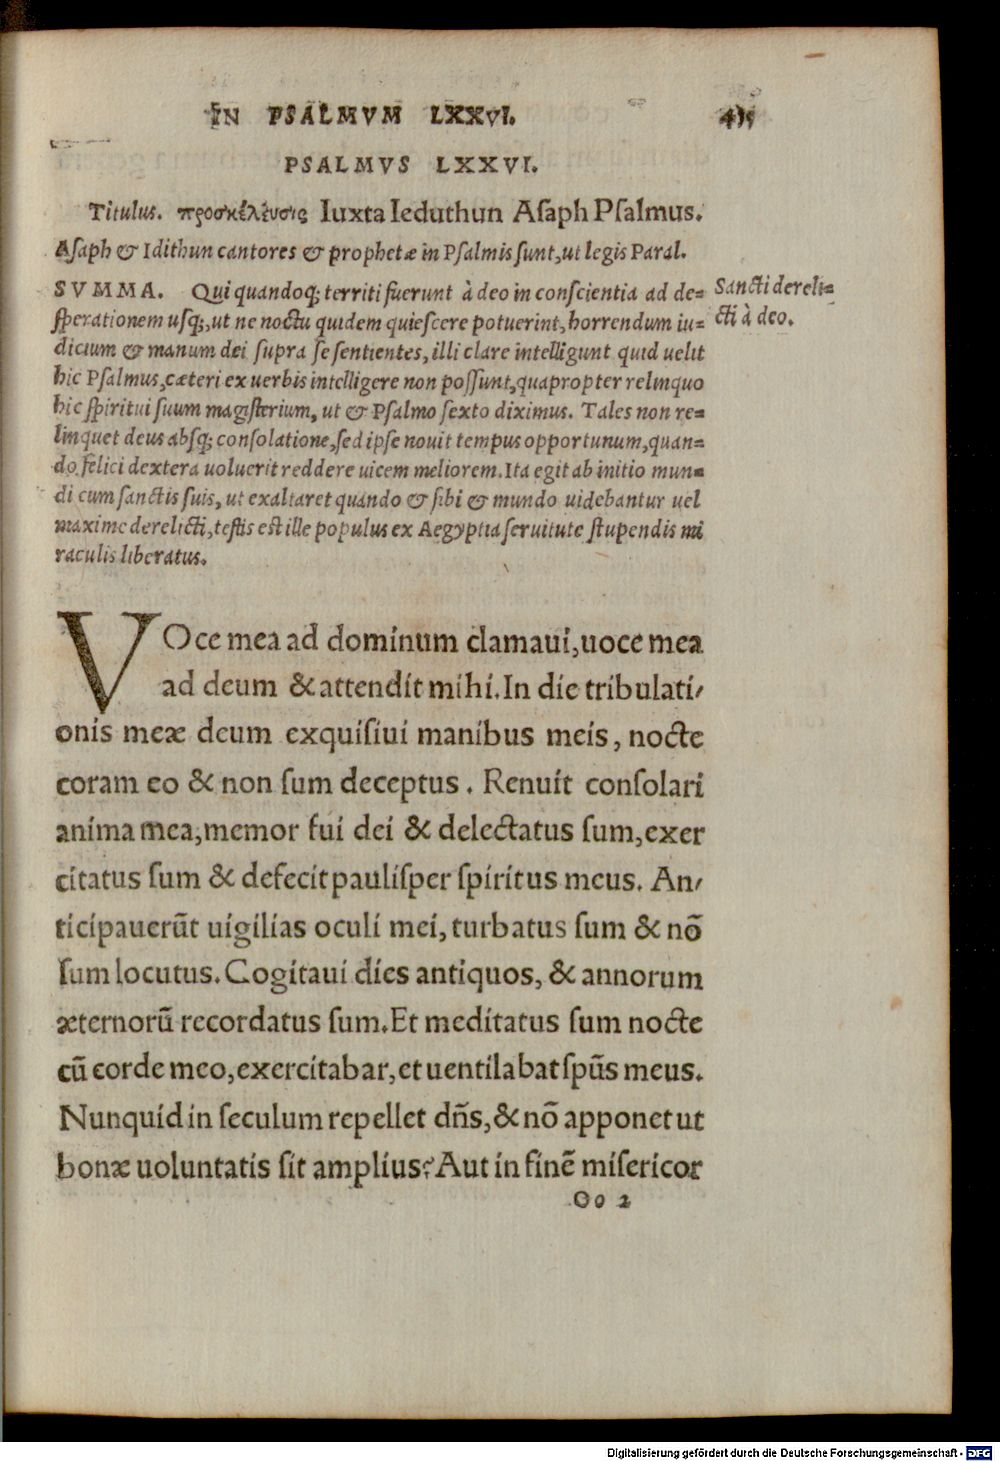 IN PSALMVM LXXVI.
PSALMVS LXXVI.
Titulus. προσκέλευσις Iuxta Ieduthun Aſaph Pſalmus.
Aſaph & Idithun cantores & prophetæ in Pſalmis ſunt, ut legis Paral.
SVMMA. Qui quandoq; territi fuerunt à deo in conſcientia ad de=
ſperationem uſq;, ut ne noctu quidem quieſcere potuerint, horrendum iu=
dicium & manum dei ſupra ſe ſentientes, illi clare intelligunt quid uelit
hic Pſalmus, cæteri ex uerbis intelligere non poſſunt, quapropter relinquo
hic ſpiritui ſuum magiſterium, ut & Pſalmo ſexto diximus. Tales non re=
linquet deus abſq; conſolatione, ſed ipſe nouit tempus opportunum, quan=
do felici dextera uoluerit reddere uicem meliorem. Ita egit ab initio mun=
di cum ſanctis ſuis, ut exaltaret quando & ſibi & mundo uidebantur uel
maxime derelicti, teſtis eſt ille populus ex Aegyptia ſeruitute ſtupendis mi
raculis liberatus.
Sancti dereli=
cti à deo.
VOce mea ad dominum clamaui, uoce mea
ad deum & attendit mihi. In die tribulati/
onis meæ deum exquiſiui manibus meis, nocte
coram eo & non ſum deceptus. Renuit conſolari
anima mea, memor fui dei & delectatus ſum, exer
citatus ſum & defecit pauliſper ſpiritus meus. An/
ticipauerūt uigilias oculi mei, turbatus ſum & nō
ſum locutus. Cogitaui dies antiquos, & annorum
æternorū recordatus ſum. Et meditatus ſum nocte
cū corde meo, exercitabar, et uentilabat ſpūs meus.
Nunquid in ſeculum repellet dñs, & nō apponet ut
bonæ uoluntatis ſit amplius? Aut in finē miſericor
Oo 2
Digitalisierung gefördert durch die Deutsche Forschungsgemeinschaft - DFG